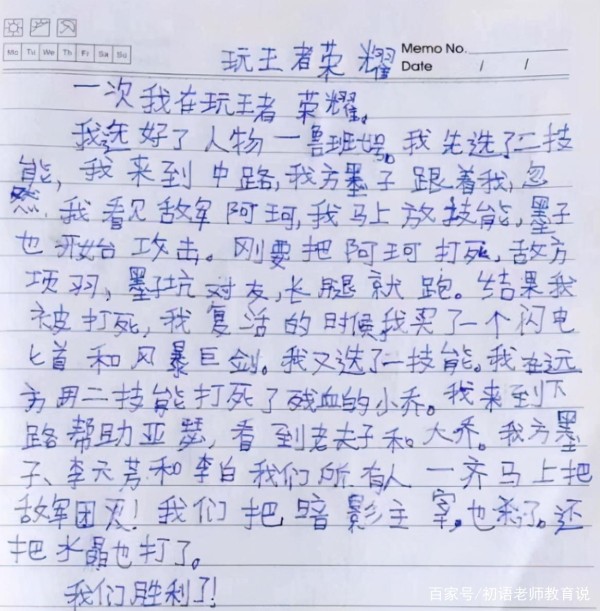 Mo Tu We Th Fr Sa Su
Memo No.
Date / /
玩王者荣耀
一次我在玩王者荣耀。
我选好了人物一鲁班七号。我先选了二技
能,我来到中路,我方墨子跟着我,忽
然,我看见敌军阿珂,我马上放技能,墨子
也开始攻击。刚要把阿珂打死,敌方
项羽,墨子坑对友,长腿就跑。结果我
被打死,我复活的时候我买了一个闪电
匕首和风暴巨剑。我又选了二技能。我在远
方用二技能打死了残血的小乔。我来到下
路帮助亚瑟,看到老夫子和大乔。我方墨
子、李元芳和李白我们所有人一齐马上把
敌军团灭!我们把暗影主宰也杀了。还
把水晶也打了。
我们胜利了!
百家号/初语老师教育说